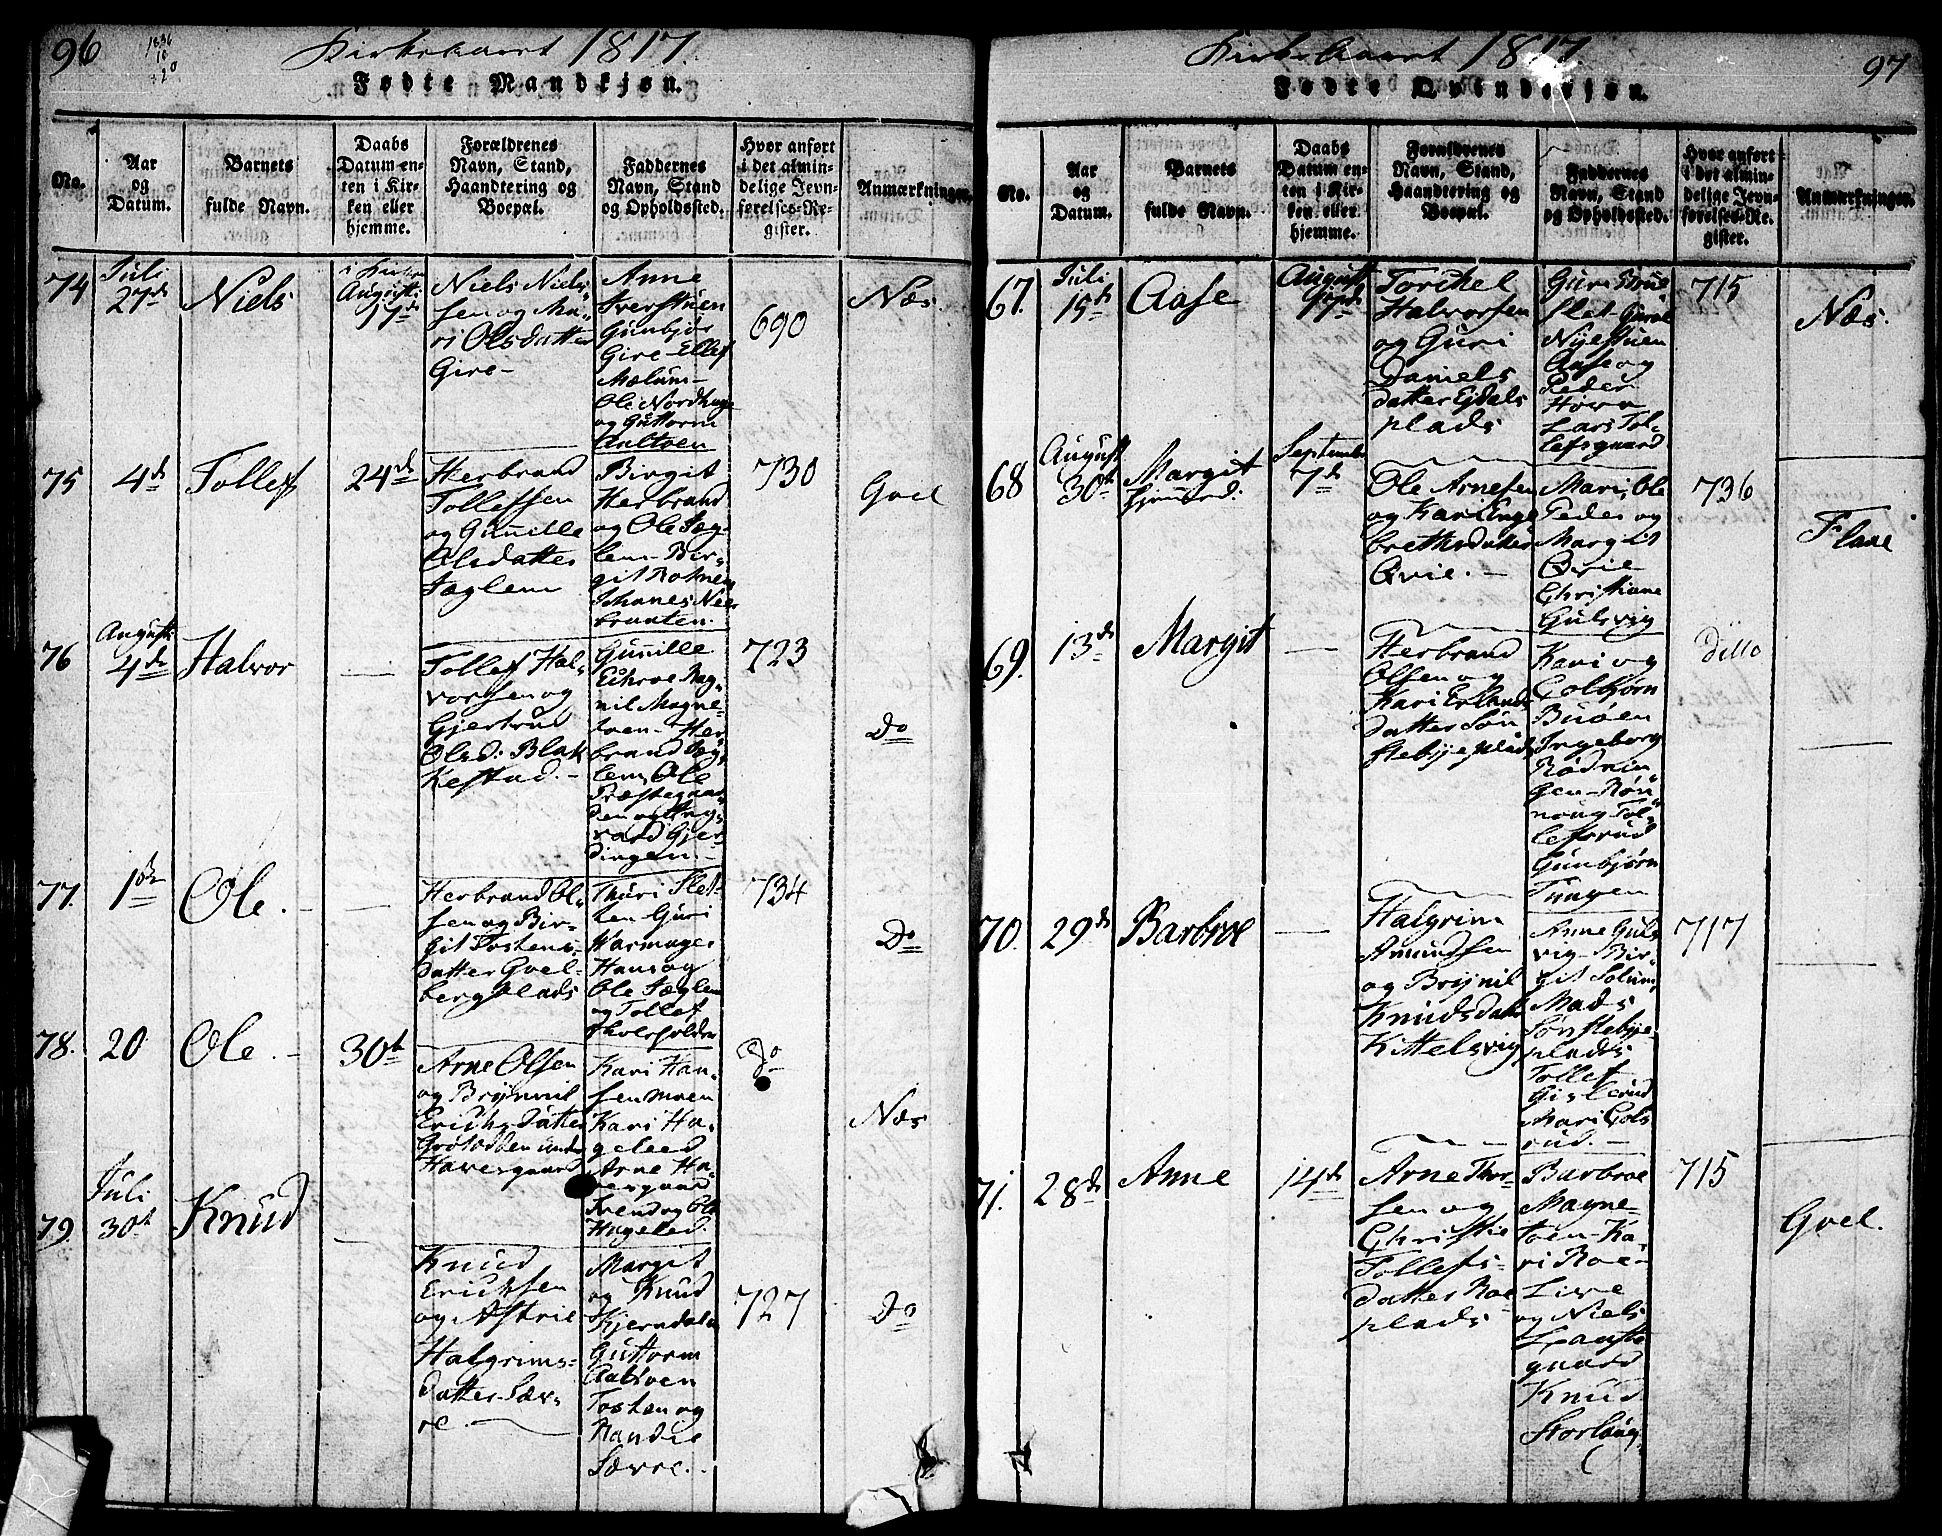 96
Kirkeaaret 1817.
Fødte Mandkjøn.
No.
Aar og Datum.
Barnets fulde Navn.
Daabs Datum enten i Kirken eller hjemme.
Forældrenes Navn, Stand, Haandtering og Boepæl.
Faddernes Navn, Stand og Opholdssted.
Hvor anført i det almindelige Jevnførelses-Register.
Anmærkninger.
74
Juli
27de
Niels
i Kirken
Augusti
17de
Niels Niels
sen og Ma„
ri Olsdatter
Gire –
Anne
Iverstuen
Gunbjør
Gire – Ellef
Mælum –
Ole Nordhage
og Guttorm
690
Næs.
75
4de
Tollef
24de
Herbrand
Tollefsen
og Gunille
Olsdatter
Sæglem
Birgit
Herbrand
og Ole Sæg„
lem – Bir„
git
Johanes
braaten.
730
Goel
76
Augusti
4de
Halvor
—
Tollef Hal„
vorsen og
Gjertrud
Olsd: Blak
kestad. –
Gunille
Eikroe Rag„
nil Magne„
toen – Her
brand Sæg„
lem, Ole
Præstegaar„
den og
vard Gjer„
dingen. –
723
Do
77.
1ste
Ole. –
—
Herbrand Ol„
sen og Bir„
git Tostens„
datter Goel„
berg plads
Thuri Slet„
ten – Guri
Warmager
Hans og
Ole Sæglem
og Tollef
734
Do
78.
20
Ole. –
30te
Arne Olsen
og Brynnil
Erichsdatter
under
Haversgaard
Kari Han„
sen moen
Kari Ha„
geleed
Arne Ha„
versgaard
Svend og Ole
Hageled.
Do
Næs
79
Juli
30te
Knud
—
Knud
Erichsen
og Astrie
Halgrims–
datter Sæv„
re. –
Margit
og Knud
Kjerndalen
Guttorm
Tosten og
Randie
Sævre. –
727
Do
97
Kirkeaaret 1817.
Fødte Qvindekjøn.
No.
Aar og Datum.
Barnets fulde Navn.
Daabs Datum enten i Kirken eller hjemme.
Forældrenes Navn, Stand, Haandtering og Boepæl.
Faddernes Navn, Stand og Opholdssted.
Hvor anført i det almindelige Jevnførelses-Register.
Anmærkninger.
67.
Juli
15de
Aase
Augusti
17de
Torchel
Halvorsen
og Guri
Daniels
datter Ejdals
plads
Guri Brue„
slet
Nyestuen
Aase og
Peder
Horn
Lars Tol„
lefsgaard
715
Næs.
68
August
30te
Margit
September
7de
Ole Arnesen
og Kari Enge
brethsdatter
Qvie. –
Mari, Ole
Peder og
Margit
Qvie
Christiane
Gulsvig
736
Flaae
69.
13de
Margit
—
Herbrand
Olsen og
Kari Erlands
datter Søn
stebye plads
Kari og
Colbjørn
Buøen
Ingeborg
Rødnin„
gen – Røn„
noug Tol„
lefsrud
Gunbjørn
Tungen
Ditto
70.
29de
Barbroe
—
Halgrim
Amundsen
og Brynil
Knudsdatter
Kittelsvig
Anne Guls
vig – Bir„
git Solum,
Mads
Sønstebye–
plads
Tollef
Gislerud
Mari Gols
rud. –
717
71.
28de
Anne
14de
Arne Thor„
sen og
Christie
Tollefs–
datter Roe
plads
Barbroe
Magne–
toen – Ka„
ri Roe –
Live
og Niels
gaard
Knud
715
Goel.